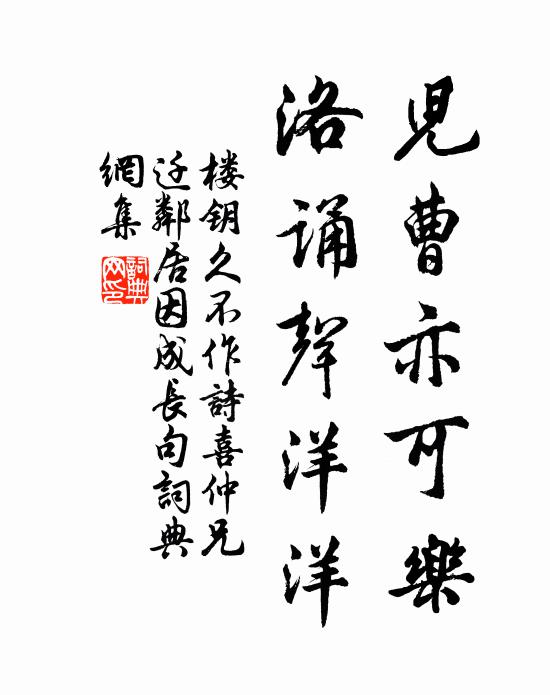 兒曹亦可樂
洛誦聲洋洋
楼钥久不作詩喜仲兄
迁鄰居因成長句詞典
網集
詞典網印